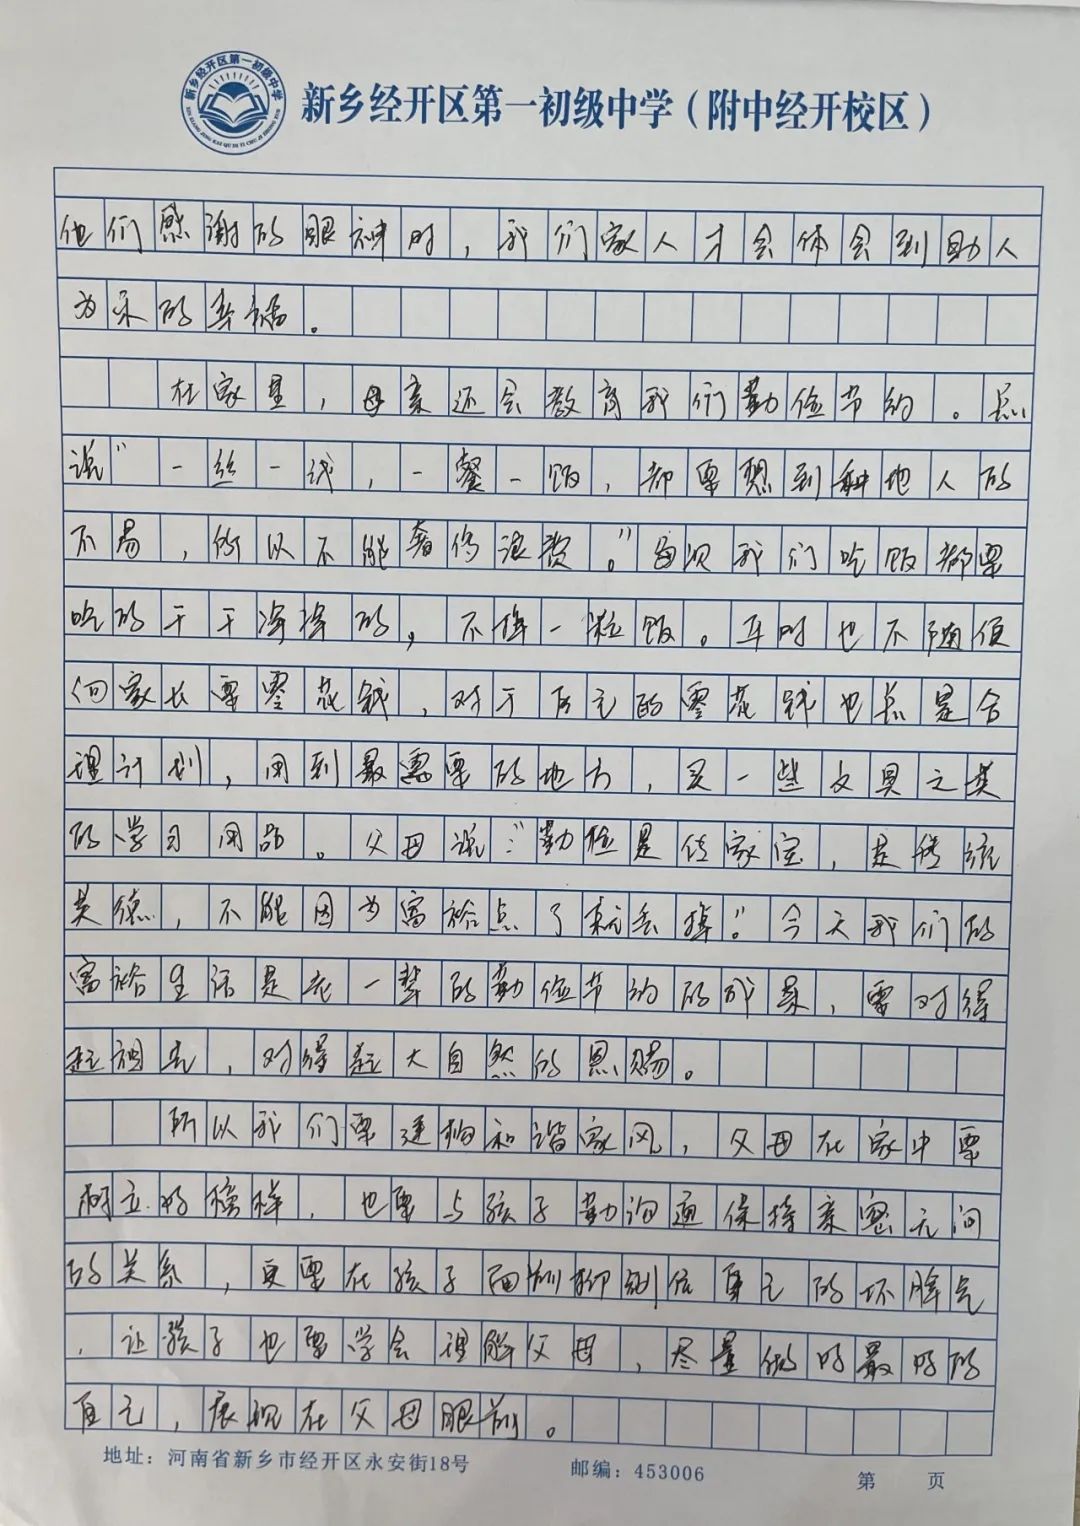 新乡经开区第一初级中学
新乡经开区第一初级中学（附中经开校区）
他们感谢的眼神时，我们家人才会体会到助人
为乐的幸福。
在家里，母亲还会教育我们勤俭节约。总
说“一丝一线，一餐一饭，都要想到种地人的
不易，所以不能奢侈浪费。”每次我们吃饭都要
吃的干干净净的，不掉一粒饭。平时也不随便
向家长要零花钱，对于自己的零花钱也总是合
理计划，用到最需要的地方，买一些文具之类
的学习用品。父母说：“勤俭是传家宝，是传统
美德，不能因为富裕点了就丢掉”。今天我们的
富裕生活是老一辈的勤俭节约的成果，要对得
起祖先，对得起大自然的恩赐。
所以我们要建构和谐家风，父母在家中要
树立好榜样，也要与孩子勤沟通保持亲密无间
的关系，更要在孩子面前抑制住自己的坏脾气
，让孩子也要学会理解父母，尽量做的最好的
自己，展现在父母眼前。
地址：河南省新乡市经开区永安街18号 邮编：453006 第 页